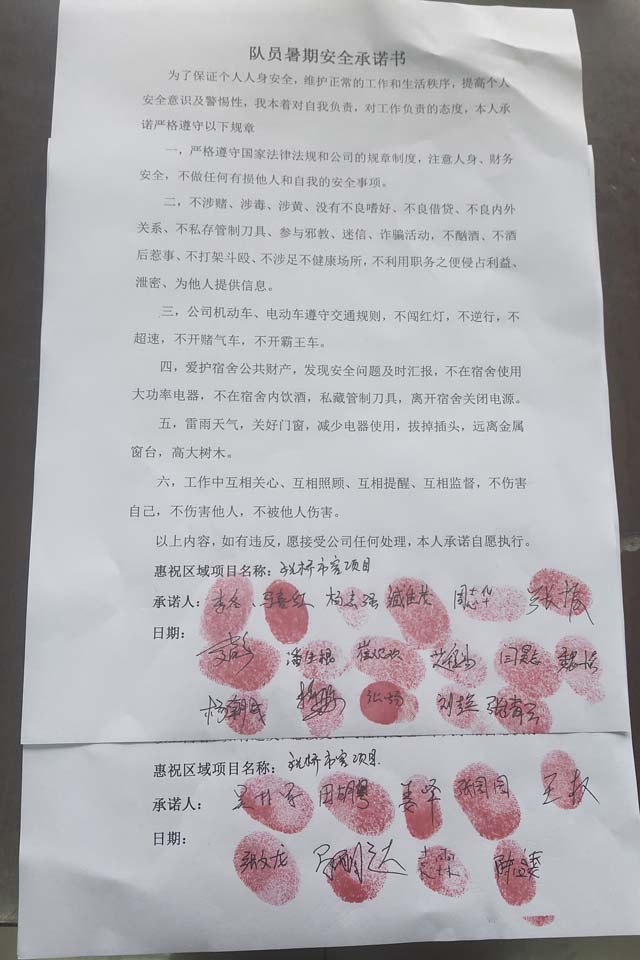 队员暑期安全承诺书
为了保证个人人身安全，维护正常的工作和生活秩序，提高个人
安全意识及警惕性，我本着对自我负责，对工作负责的态度，本人承
诺严格遵守以下规章
一，严格遵守国家法律法规和公司的规章制度，注意人身、财务
安全，不做任何有损他人和自我的安全事项。
二，不涉赌、涉毒、涉黄、没有不良嗜好、不良借贷、不良内外
关系、不私存管制刀具、参与邪教、迷信、诈骗活动，不酗酒、不酒
后惹事、不打架斗殴、不涉足不健康场所，不利用职务之便侵占利益、
泄密、为他人提供信息。
三，公司机动车、电动车遵守交通规则，不闯红灯，不逆行，不
超速，不开赌气车，不开霸王车。
四，爱护宿舍公共财产，发现安全问题及时汇报，不在宿舍使用
大功率电器，不在宿舍内饮酒，私藏管制刀具，离开宿舍关闭电源。
五，雷雨天气，关好门窗，减少电器使用，拔掉插头，远离金属
窗台，高大树木。
六，工作中互相关心、互相照顾、互相提醒、互相监督，不伤害
自己，不伤害他人，不被他人伤害。
以上内容，如有违反，愿接受公司任何处理，本人承诺自愿执行。
惠祝区域项目名称：桥市客项目
承诺人：杨志强 张振
日期：
潘生根
杨朝成 弘扬 刘燚
惠祝区域项目名称：桥市客项目
承诺人：姜军 张园园 王权
日期：
张文龙